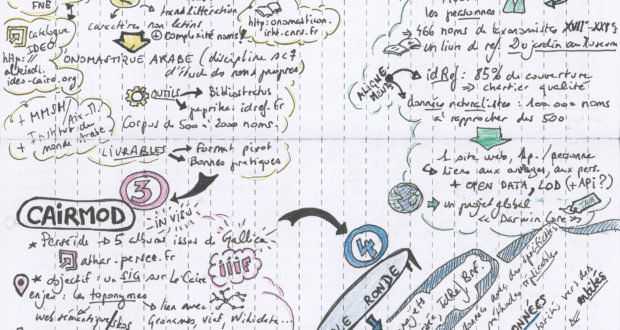 FNE
translittération
caractères non latins
+ Complexité noms!
http://onomasticon.irht.cnrs.fr
Catalogue
IDEO
http://
alkindi.
ideo-cairo.org
ONOMASTIQUE ARABE (discipline sc
d'étude des noms propres)
OUTILS
Bibliostratus
paprika.idref.fr
+ MMSH/Aix
+ Institut du
monde arabe
Corpus de 500 à 2000 noms.
LIVRABLES
Format pivot
Bonnes pratiques
les personnes.
→ 466 noms de taxonomistes XVIIe-XXe s
un livre de ref. Du jardin au Museum
ALIGNE
MENTS
idRef: 85% de couverture
→ chantier qualité
données naturalistes: 100 000 noms
à rapprocher des 500
1 site web, 1 p. / personne
liens aux ouvrages, aux pers.
+ OPEN DATA, LOD (+ API?)
un projet global
<< Darwin Core >>
TAXO
3
CAIRMOD
IN VISU
* Persée → 5 albums issus de Gallica
athar.persee.fr
* objectif: un SIG sur le Caire
iiif
enjeu: les toponymes
→ lien avec
Geonames, viaf, Wikidata...
web sémantique
4
RONDE
IdRef, BnF.
DONNÉES
avec des spécificités
méthodes réplicables
vers des
entités